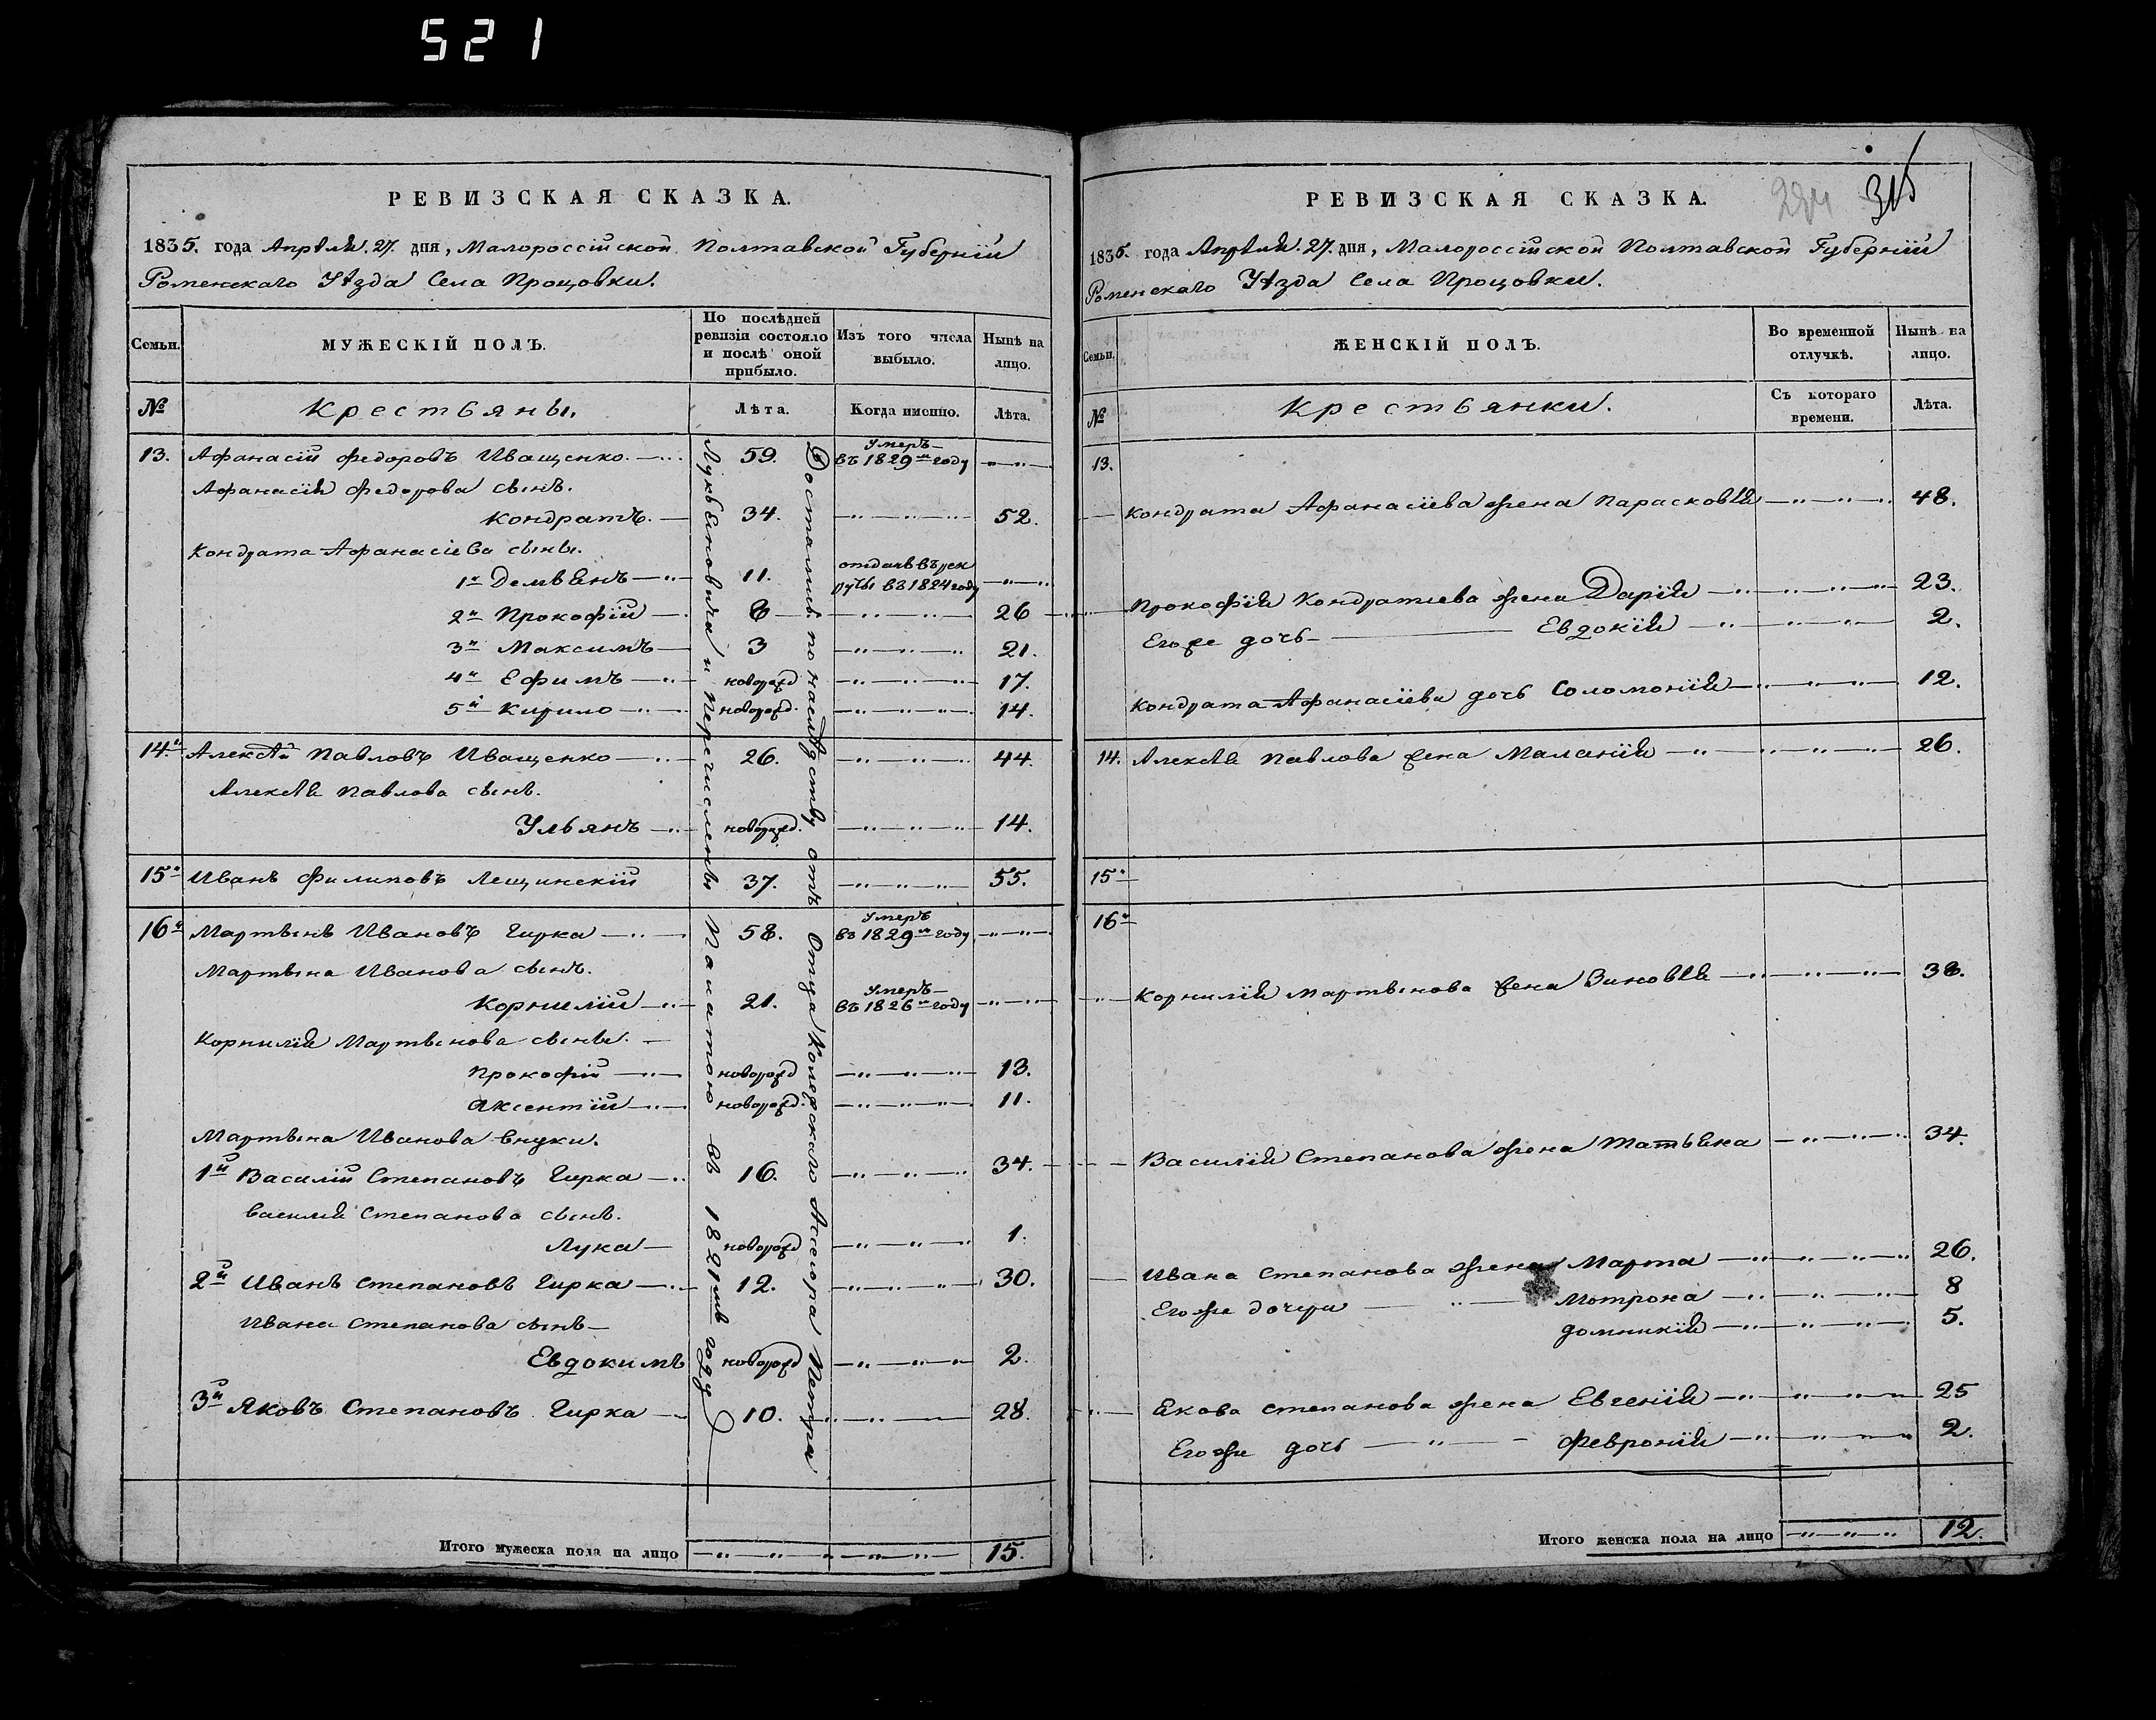 521
РЕВИЗСКАЯ СКАЗКА.
1835. года Апрѣля. 27. дня, Малороссійской Полтавской Губерніи
Роменскаго Уѣзда Села Процовки.
Семьи.
МУЖЕСКІЙ ПОЛЪ.
По послѣдней ревизіи состояло и послѣ оной прибыло.
Изъ того числа выбыло.
Нынѣ на лицо.
№
Крестьяны.
Лѣта.
Когда именно.
Лѣта.
13. Афанасій Федоровъ Иващенко. 59. Умеръ въ 1829м году
Афанасія Федорова сынъ.
Кондратъ. 34. 52.
Кондрата Афанасіева сыны.
1й Демьянъ 11. отданъ въ рекруты въ 1824 году
2й Прокофій 8 26
3й Максимъ 3 21.
4й Ефимъ новорожд 17.
5й Кирило новорожд. 14.
14.й Алексѣй Павловъ Иващенко 26. 44.
Алексѣя Павлова сынъ.
Ульянъ новорожд. 14.
15й Иванъ Филиповъ Лещинскій 37. 55.
16й Мартынъ Ивановъ Гирка 58. Умеръ въ 1829м году
Мартына Иванова сынъ.
Корнилій 21. Умеръ въ 1826м году
Корнилія Мартынова сыны.
Прокофій новорожд 13.
Аксентій новорожд. 11.
Мартына Иванова внуки.
1й Василій Степановъ Гирка 16. 34.
Василія Степанова сынъ.
Лука новорожд 1.
2й Иванъ Степановъ Гирка 12. 30.
Ивана Степанова сынъ
Евдокимъ новорожд 2.
3й Яковъ Степановъ Гирка 10. 28.
Достались по наслѣдству отъ Отца Колежского Асесора Петра
Лукьяновича и Перечислены Палатою въ 1821мъ году
Итого мужеска пола на лицо 15.
РЕВИЗСКАЯ СКАЗКА.
315
1835. года Апрѣля. 27. дня, Малороссійской Полтавской Губерніи
Роменскаго Уѣзда Села Процовки.
Семьи.
ЖЕНСКІЙ ПОЛЪ.
Во временной отлучкѣ.
Нынѣ на лицо.
№
Крестьянки.
Съ котораго времени.
Лѣта.
13.
Кондрата Афанасіева жена Парасковѣя 48.
Прокофія Кондратиева жена Дарія 23.
Егоже дочь Евдокія 2.
Кондрата Афанасіева дочь Соломонія 12.
14. Алексѣя Павлова жена Маланія 26.
15й
16й
Корнилія Мартынова жена Зиновѣя 38.
Василія Степанова жена Татьяна 34.
Ивана Степанова жена Марта 26.
Егоже дочери Мотрона 8
Домникія 5.
Якова Степанова жена Евгенія 25
Егоже дочь Февронія 2.
Итого женска пола на лицо 12.